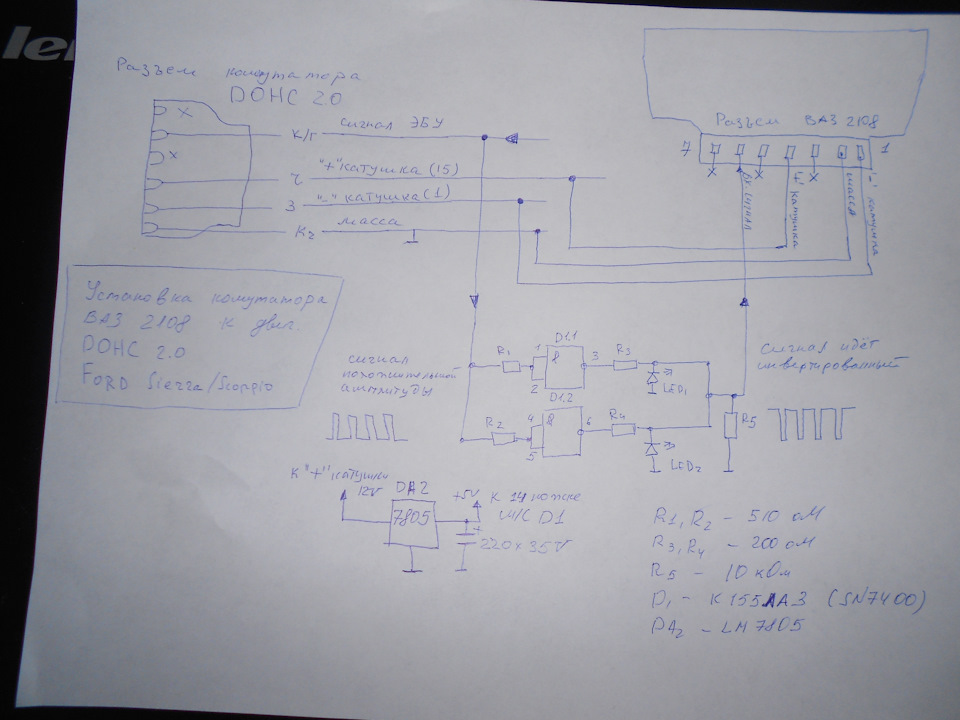 len
Разъем комутатора
DOHC 2.0
X
X
К/Г
сигнал ЭБУ
Ч
"+" катушка (15)
З
"-" катушка (1)
К2
масса
Разъем ВАЗ 2108
7
1
X
X
X
X
Вх. сигнал
"+" катушка
масса
"-" катушка
Установка комутатора
ВАЗ 2108 к двиг.
DOHC 2.0
Ford Sierra/Scorpio
сигнал
положительной
амплитуды
Сигнал идёт
инвертированный
D1.1
R1
1
2
8
3
R3
LED1
D1.2
R2
4
5
8
6
R4
LED2
R5
К "+" катушки
12V
DA2
7805
+5V
+
220x35V
К 14 ножке
М/С D1
R1, R2 - 510 ом
R3, R4 - 200 ом
R5 - 10 кОм
D1 - К155ЛА3 (SN7400)
DA2 - LM7805